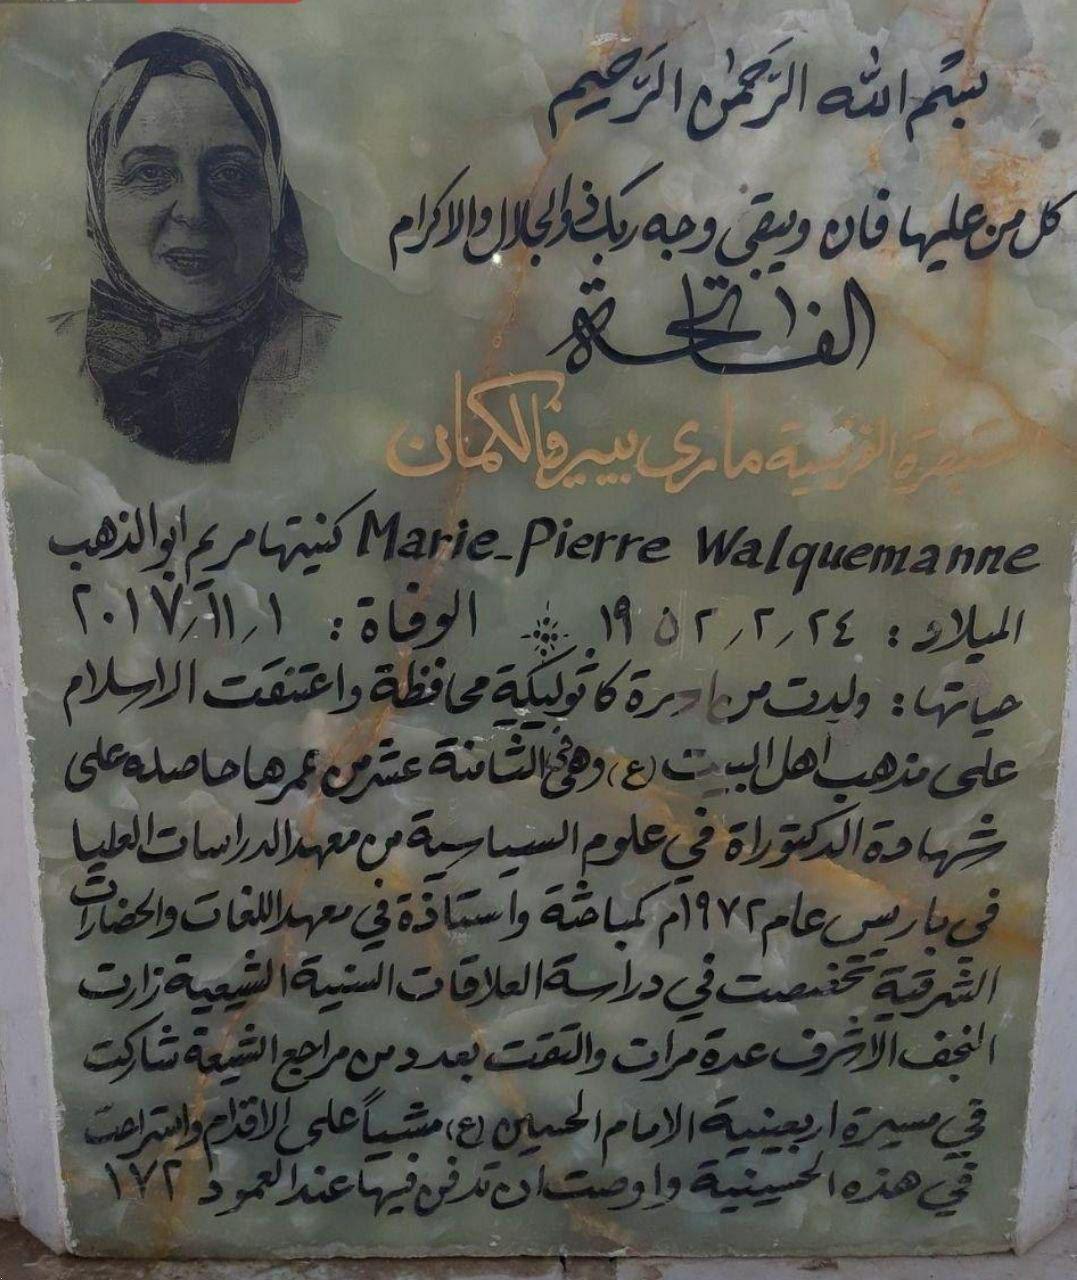 بسم الله الرَّحمٰن الرَّحيم
كل من عليها فان ويبقى وجه ربك ذو الجلال والاكرام
الفاتحة
الفرنسية ماري بيير فالكمان
Marie-Pierre Walquemanne كنيتها مريم ابو الذهب
الميلاد : ٢٤ / ٢ / ١٩٥٢ الوفاة : ١ / ١١ / ٢٠١٧
حياتها : ولدت من اسرة كاثوليكية محافظة واعتنقت الاسلام
على مذهب اهل البيت (ع) وهي في الثامنة عشر من عمرها حاصله على
شهادة الدكتوراة في علوم السياسية من معهد الدراسات العليا
في باريس عام ١٩٧٢م كباحثة واستاذة في معهد اللغات والحضارات
الشرقية تخصصت في دراسة العلاقات السنية الشيعية زارت
النجف الاشرف عدة مرات والتقت بعدد من مراجع الشيعة شاركت
في مسيرة اربعينية الامام الحسين (ع) مشياً على الاقدام واستراحت
في هذه الحسينية واوصت ان تدفن فيها عند العمود ١٧٢